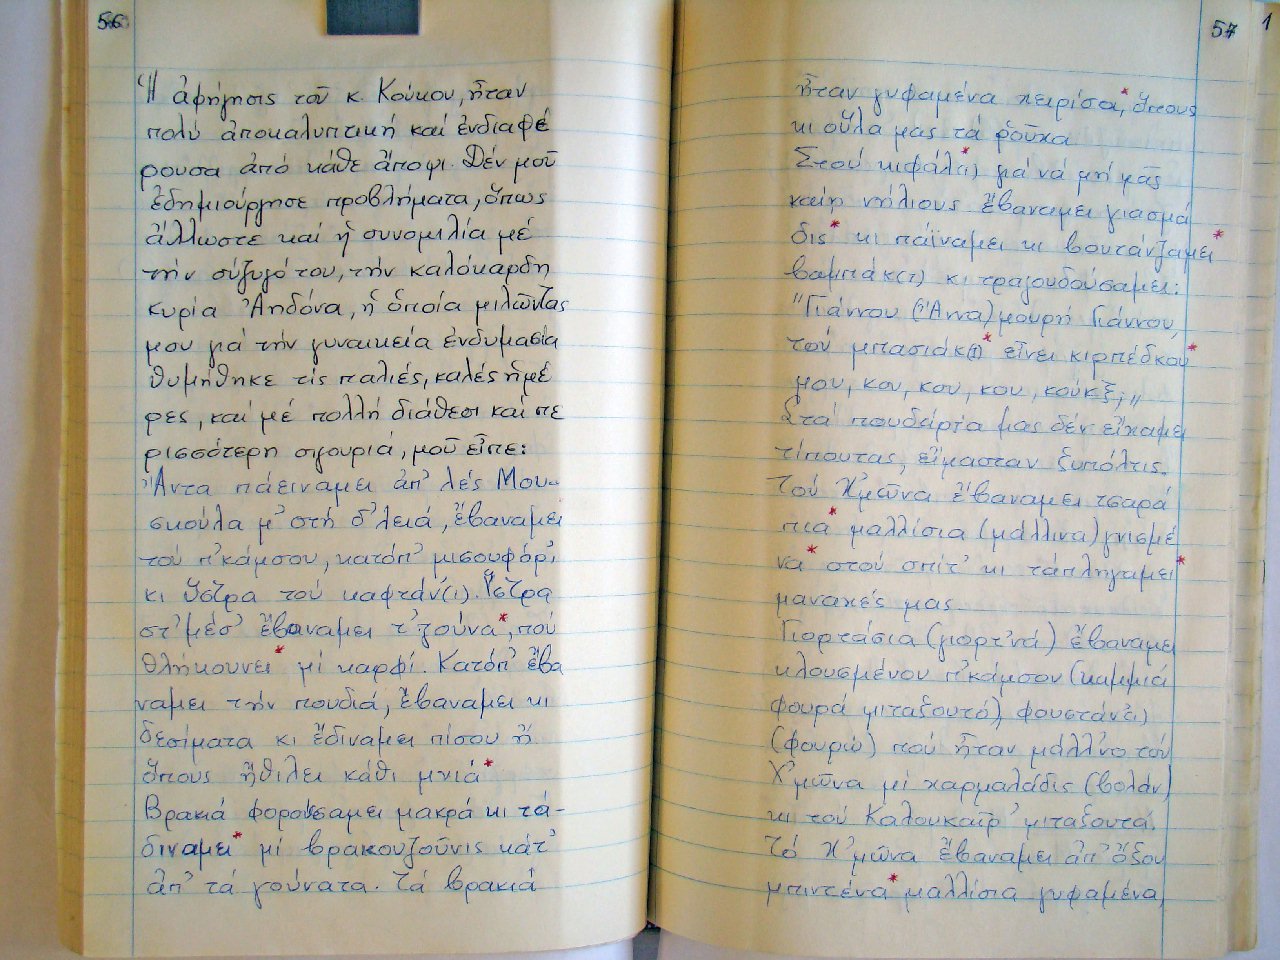 56
Ἡ ἀφήγησις τοῦ κ. Κούκου, ἦταν
πολύ ἀποκαλυπτική καί ἐνδιαφέ
ρουσα ἀπό κάθε ἄποψι. Δέν μοῦ
ἐδημιούργησε προβλήματα, ὅπως
ἄλλωστε καί ἡ συνομιλία μέ
τήν σύζυγό του, τήν καλόκαρδη
κυρία Ἀηδόνα, ἡ ὁποία μιλῶντας
μου γιά τήν γυναικεία ἐνδυμασία
θυμήθηκε τίς παλιές, καλές ἡμέ
ρες, καί μέ πολλή διάθεσι καί πε
ρισσότερη σιγουριά, μοῦ εἶπε:
"Ἄντα πάειναμει ἀπ' λές Μου-
σκούλα μ' στή δ'λειά, ἔβαναμει
τού π'κάμσου, κατόπ' μισουφόρ',
κι ὕστρα τού καφτάν'(ι). Ὕστρα
στ' μέσ' ἔβαναμει τ' ζούνα*, πού
θλήκουνει* μί καρφί. Κατόπ' ἔβα
ναμει τήν πουδιά, ἔβαναμει κι
δεσίματα κι ἔδιναμει πίσου ἤ
ὅπους ἤθιλει κάθι μνιά*
Βρακιά φορούσαμει μακρά κι τά-
διναμει* μί βρακουζοῦνις κάτ'
ἀπ' τά γούνατα. Τά βρακιά
57
1
ἦταν γυφαμένα χειρίσα*, ὅπους
κι οὕλα μας τά ροῦχα.
Στού κιφάλ*(ι) γιά νά μή μᾶς
καίη νήλιους ἔβαναμει γιασμά
δις* κι πάϊναμει κι βουτάνζαμει*
βαμπάκ(ι) κι τραγουδούσαμει:
"Γιάννου (Ἄννα) μουρή Γιάννου,
τού μπασιάκ(ι)* εἶνει κιρπέδκου*
μου, κου, κου, κου, κούκξ;"
Στά πουδάρια μας δέν εἴχαμει
τίπουτας, εἴμασταν ξυπόλτις.
Τού Χ'μῶνα ἔβαναμει τσαρά
πια* μαλλίσια (μάλλινα) γνισμέ
να* στού σπίτ' κι τάπληγαμει*
μαναχές μας.
Γιορτάσια (γιορτ'νά) ἔβαναμει
κλουσμένου π'κάμσου (καμμιά
φουρά μιταξουτό), φουστάν'(ι)
(φουριώ) πού ἦταν μάλλ'νο τού
Χ'μῶνα μί χαρμαλάδις (βολάν)
κι τού Καλουκαίρ' μιταξουτά.
Τό Χ'μῶνα ἔβαναμει ἀπ' ὄξου
μπιντένα* μαλλίσια γυφαμένα,